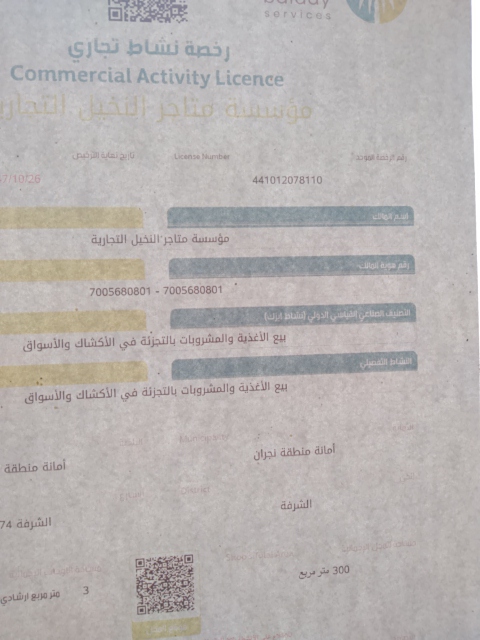 balady
services
رخصة نشاط تجاري
Commercial Activity Licence
مؤسسة متاجر النخيل التجارية
رقم الرخصة الموحد License Number تاريخ نهاية الترخيص
441012078110 7/10/26
اسم المالك
مؤسسة متاجر النخيل التجارية
رقم هوية المالك
7005680801 - 7005680801
التصنيف الصناعي القياسي الدولي (نشاط ايزك)
بيع الأغذية والمشروبات بالتجزئة في الأكشاك والأسواق
النشاط التفصيلي
بيع الأغذية والمشروبات بالتجزئة في الأكشاك والأسواق
Municipality
أمانة منطقة نجران أمانة منطقة
District الشارع
الشرفة الشرفة 74
300 متر مربع 3 متر مربع ارشادي